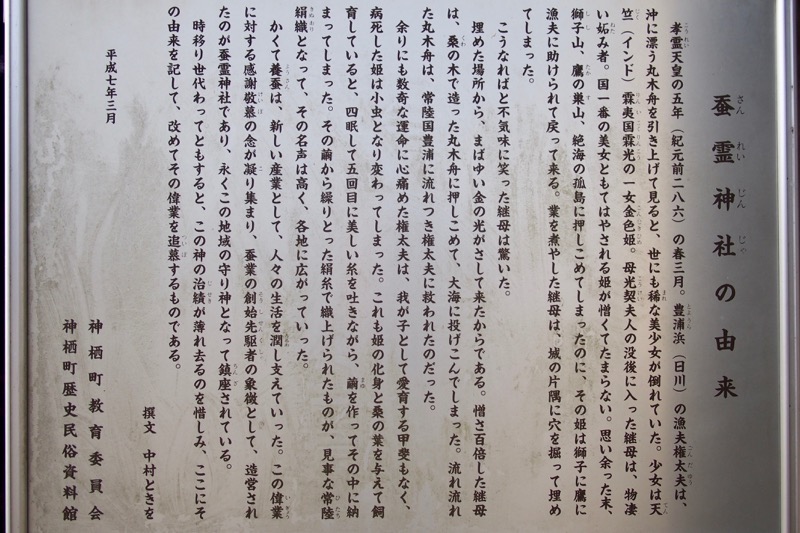 蚕霊神社の由来
孝霊天皇の五年（紀元前二八六）の春三月。豊浦浜（日川）の漁夫権太夫は、
沖に漂う丸木舟を引き上げて見ると、世にも稀な美少女が倒れていた。少女は天
竺（インド）霖夷国霖光の一女金色姫。母光契夫人の没後に入った継母は、物凄
い妬み者。国一番の美女ともてはやされる姫が憎くてたまらない。思い余った末、
獅子山、鷹の巣山、絶海の孤島に押しこめてしまったのに、その姫は獅子に鷹に
漁夫に助けられて戻って来る。業を煮やした継母は、城の片隅に穴を掘って埋め
てしまった。
こうなればと不気味に笑った継母は驚いた。
埋めた場所から、まばゆい金の光がさして来たからである。憎さ百倍した継母
は、桑の木で造った丸木舟に押しこめて、大海に投げこんでしまった。流れ流れ
た丸木舟は、常陸国豊浦に流れつき権太夫に救われたのだった。
余りにも数奇な運命に心痛めた権太夫は、我が子として愛育する甲斐もなく、
病死した姫は小虫となり変わってしまった。これも姫の化身と桑の葉を与えて飼
育していると、四眠して五回目に美しい糸を吐きながら、繭を作ってその中に納
まってしまった。その繭から繰りとった絹糸で織上げられたものが、見事な常陸
絹織となって、その名声は高く、各地に広がっていった。
かくて養蚕は、新しい産業として、人々の生活を潤し支えていった。この偉業
に対する感謝敬慕の念が凝り集まり、蚕業の創始先駆者の象徴として、造営され
たのが蚕霊神社であり、永くこの地域の守り神となって鎮座されている。
時移り世代わってともすると、この神の治績が薄れ去るのを惜しみ、ここにそ
の由来を記して、改めてその偉業を追慕するものである。
撰文　中村ときを
平成七年三月
神栖町教育委員会
神栖町歴史民俗資料館